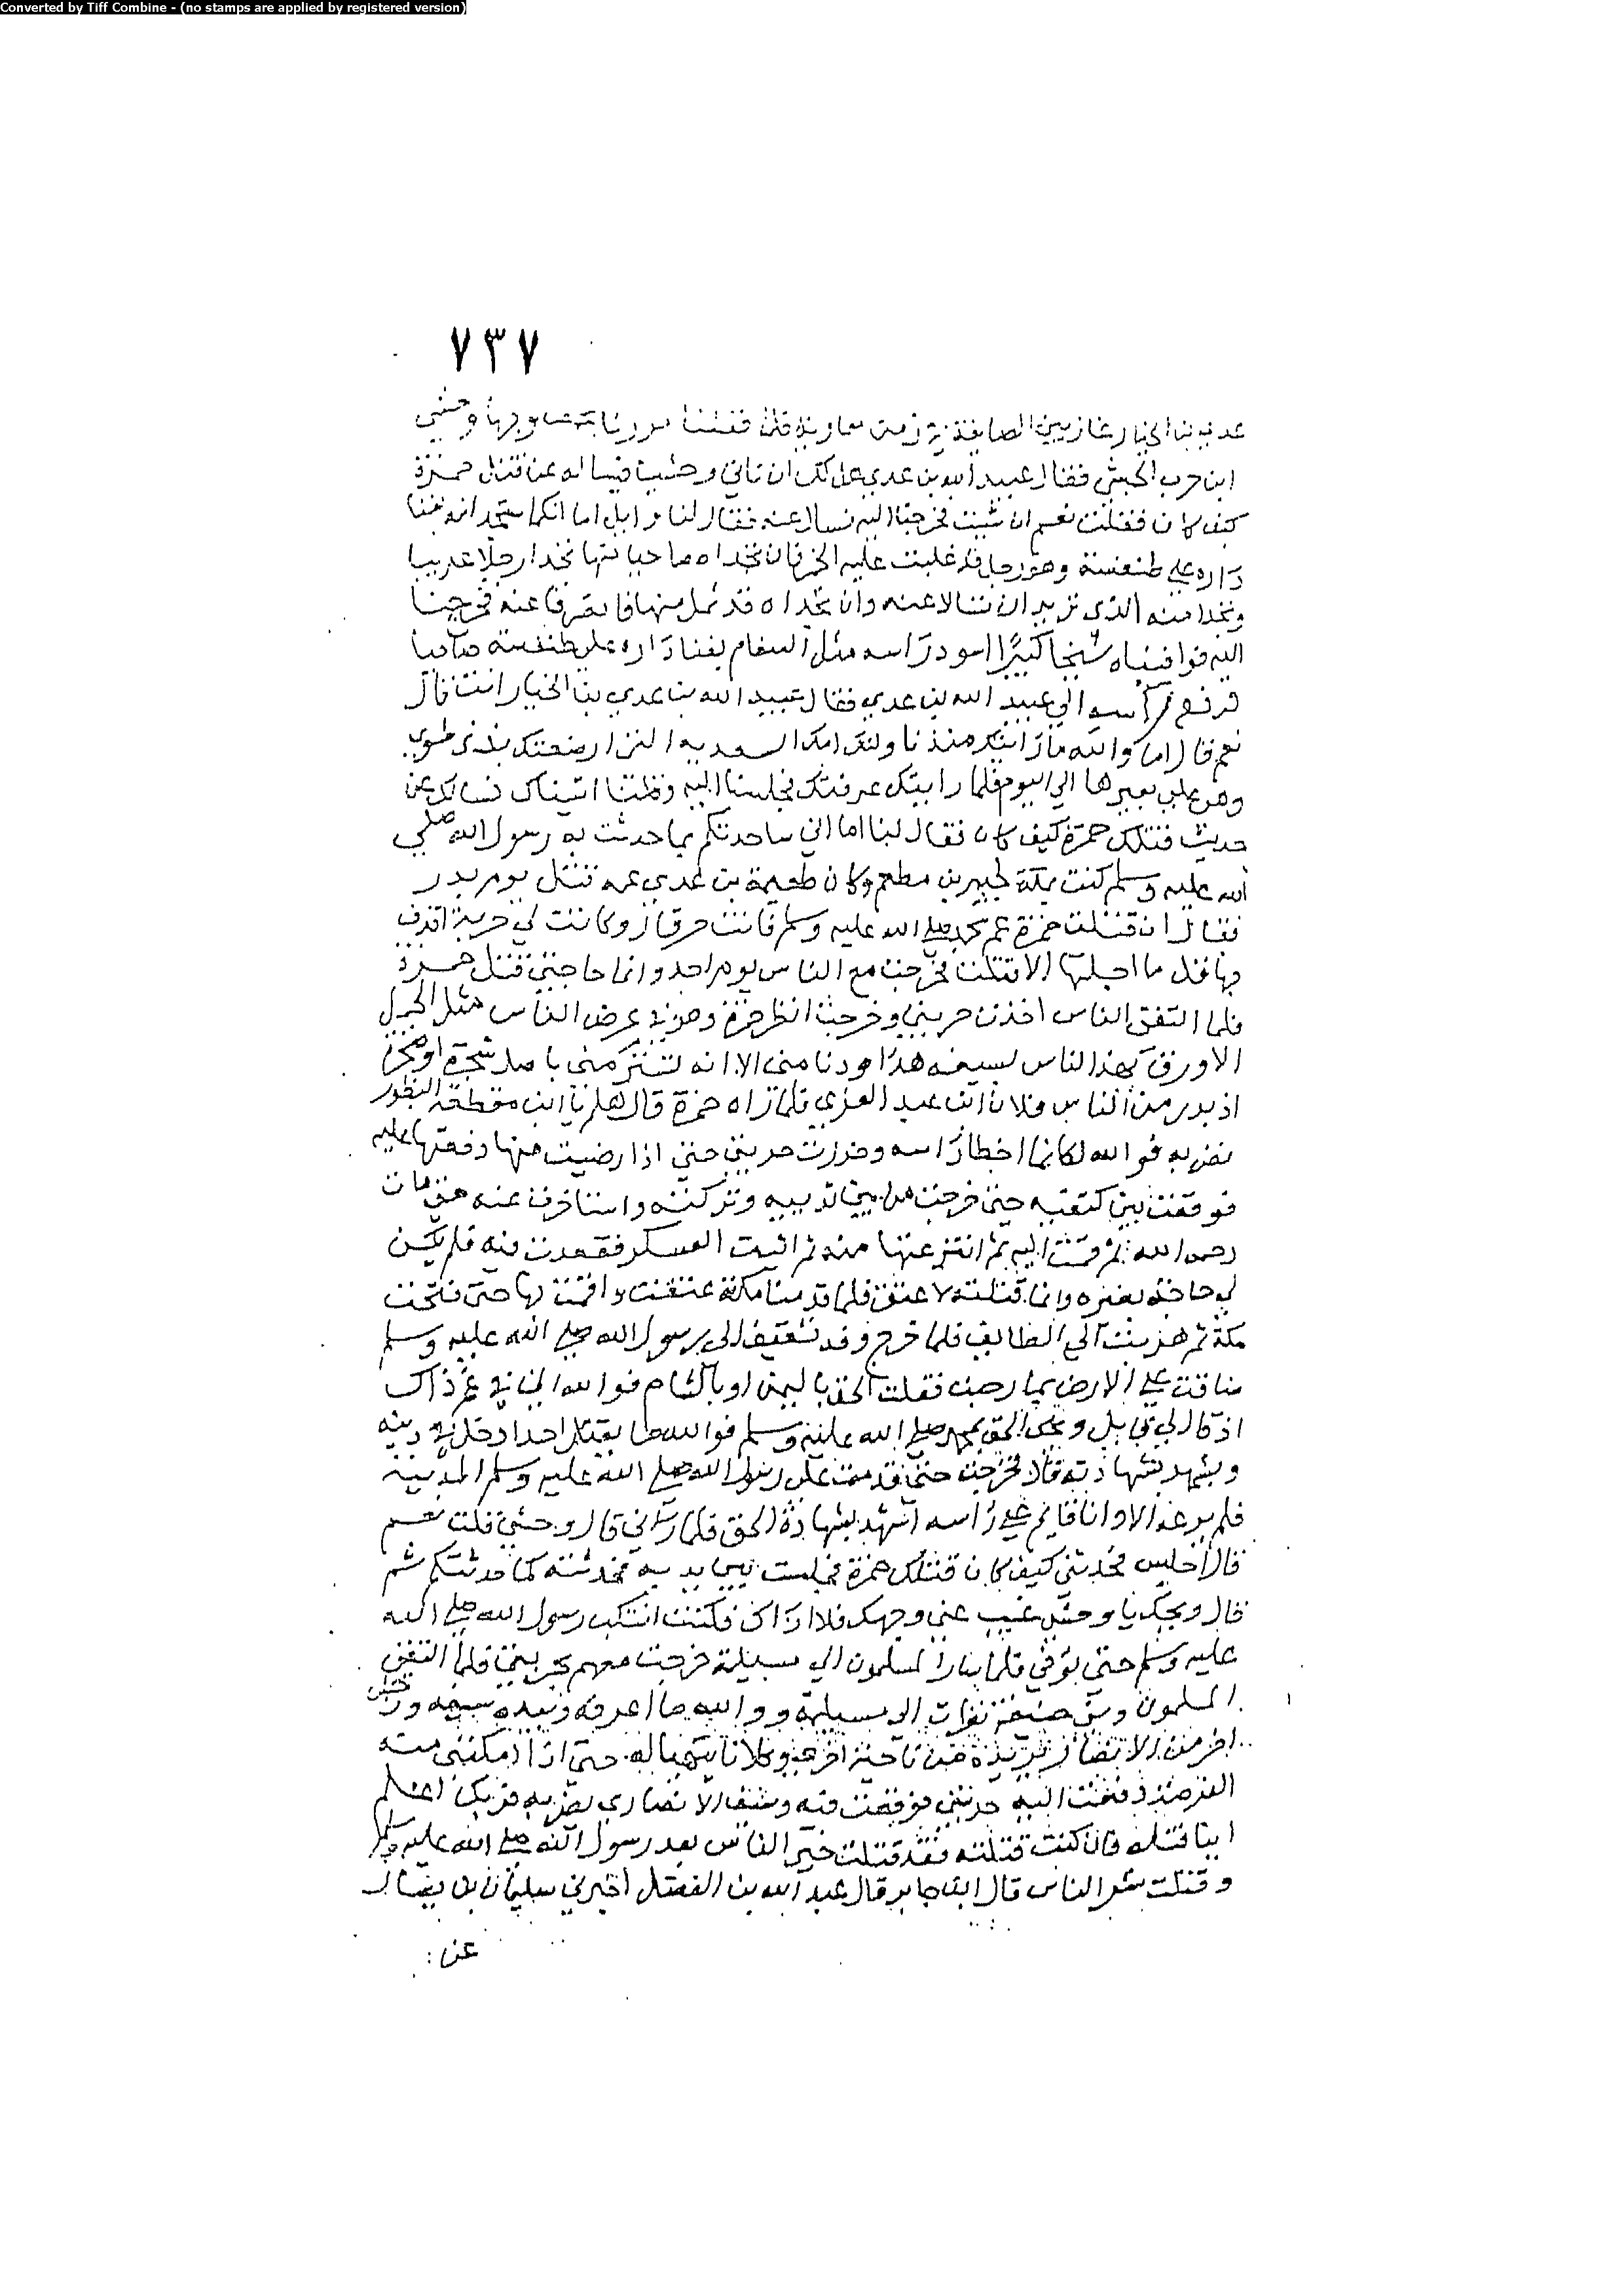 Converted by Tiff Combine - (no stamps are applied by registered version)
٧٣٧
عدي بن الخيار غازيين الصايفة في زمن معاوية فلما قفلنا مررنا بحمص وبها وحشي
ابن حرب الحبشي فقال عبيد الله بن عدي هل لك ان ناتي وحشيا فنساله عن قتل حمزة
كيف كان فقلت نعم ان شيت فخرجنا اليه نسال عنه فقال لنا رجل اما انكما ستجدانه بفنا
داره علي طنفسة وهو رجل قد غلبت عليه الخمر فان تجداه صاحيا تجدا رجلا عربيا
وتجدا منه الذي تريدان تسالا عنه وان تجداه قد ثمل منها فانصرفا عنه فخرجنا
اليه فوافيناه شيخا كبيرا اسود راسه مثل الثغام بفنا داره علي طنفسة صاحيا
فرفع راسه الي عبيد الله بن عدي فقال عبيد الله بن عدي بن الخيار انت قال
نعم قال اما والله ما رايتك منذ ناولتك امك السعدية التي ارضعتك بذي طوي
وهي علي بعيرها الي اليوم فلما رايتك عرفتك فجلسنا اليه وقلنا اتيناك نسالك عن
حديث قتلك حمزة كيف كان فقال لنا اما اني ساحدثكم بما حدثت به رسول الله صلي
الله عليه وسلم كنت بمكة لجبير بن مطعم وكان طعيمة بن عدي عمه قتل يوم بدر
فقال ان قتلت حمزة عم محمد صلي الله عليه وسلم فانت حر قال وكانت لي حربة اقذف
بها قل ما اجلتها الا قتلت فخرجت مع الناس يوم احد وانما حاجتي قتل حمزة
فلما التقي الناس اخذت حربتي وخرجت انظر حمزة وهو في عرض الناس مثل الجمل
الاورق يهذ الناس بسيفه هذا ودنا مني الا انه تستتر مني باصل شجرة او صخرة
اذ بدر من الناس فلان ابن عبد العزي فلما راه حمزة قال هلم يا ابن مقطعة البظور
فضربه فوالله لكانما اخطا راسه وهززت حربتي حتي اذا رضيت منها دفعتها عليه
فوقعت بين كتفيه حتي خرجت من بين ثدييه وتركته واستاخرت عنه حتي مات
رحمه الله ثم قمت اليه ثم انتزعتها منه ثم اتيت العسكر فقعدت فيه فلم يكن
لي حاجة بغيره وانما قتلته لاعتق فلما قدمنا مكة عتقت واقمت بها حتي فتحت
مكة ثم هربت الي الطايف فلما خرج وفد ثقيف الي رسول الله صلي الله عليه وسلم
ضاقت علي الارض بما رحبت فقلت الحق باليمن او بالشام فوالله اني في غم ذاك
اذ قال لي قايل ويحك الحق بمحمد صلي الله عليه وسلم فوالله ما يقتل احدا دخل في دينه
ويشهد بشهادته قال فخرجت حتي قدمت علي رسول الله صلي الله عليه وسلم المدينة
فلم يرعه الا وانا قايم علي راسه اشهد بشهادة الحق فلما راني قال وحشي قلت نعم
قال اجلس فحدثني كيف كان قتلك حمزة فجلست بين يديه فحدثته كما حدثتكم ثم
قال ويحك يا وحشي غيب عني وجهك فلا اراك فكنت انتكب رسول الله صلي الله
عليه وسلم حتي توفي فلما سار المسلمون الي مسيلمة خرجت معهم بحربتي فلما التقي
المسلمون وبني حنيفة نظرت الي مسيلمة ووالله ما اعرفه وبيده سيفه ورجل
اخر من الانصار يريده من ناحية اخري وكلانا يتهيا له حتي اذا امكنتني منه
الفرصة دفعت اليه حربتي فوقعت فيه وشد الانصاري يضربه فربك اعلم
اينا قتله فان كنت قتلته فقد قتلت خير الناس بعد رسول الله صلي الله عليه وسلم
وقتلت شر الناس قال ابن جابر قال عبد الله بن الفضل اخبرني سليمان بن يسار
عن :